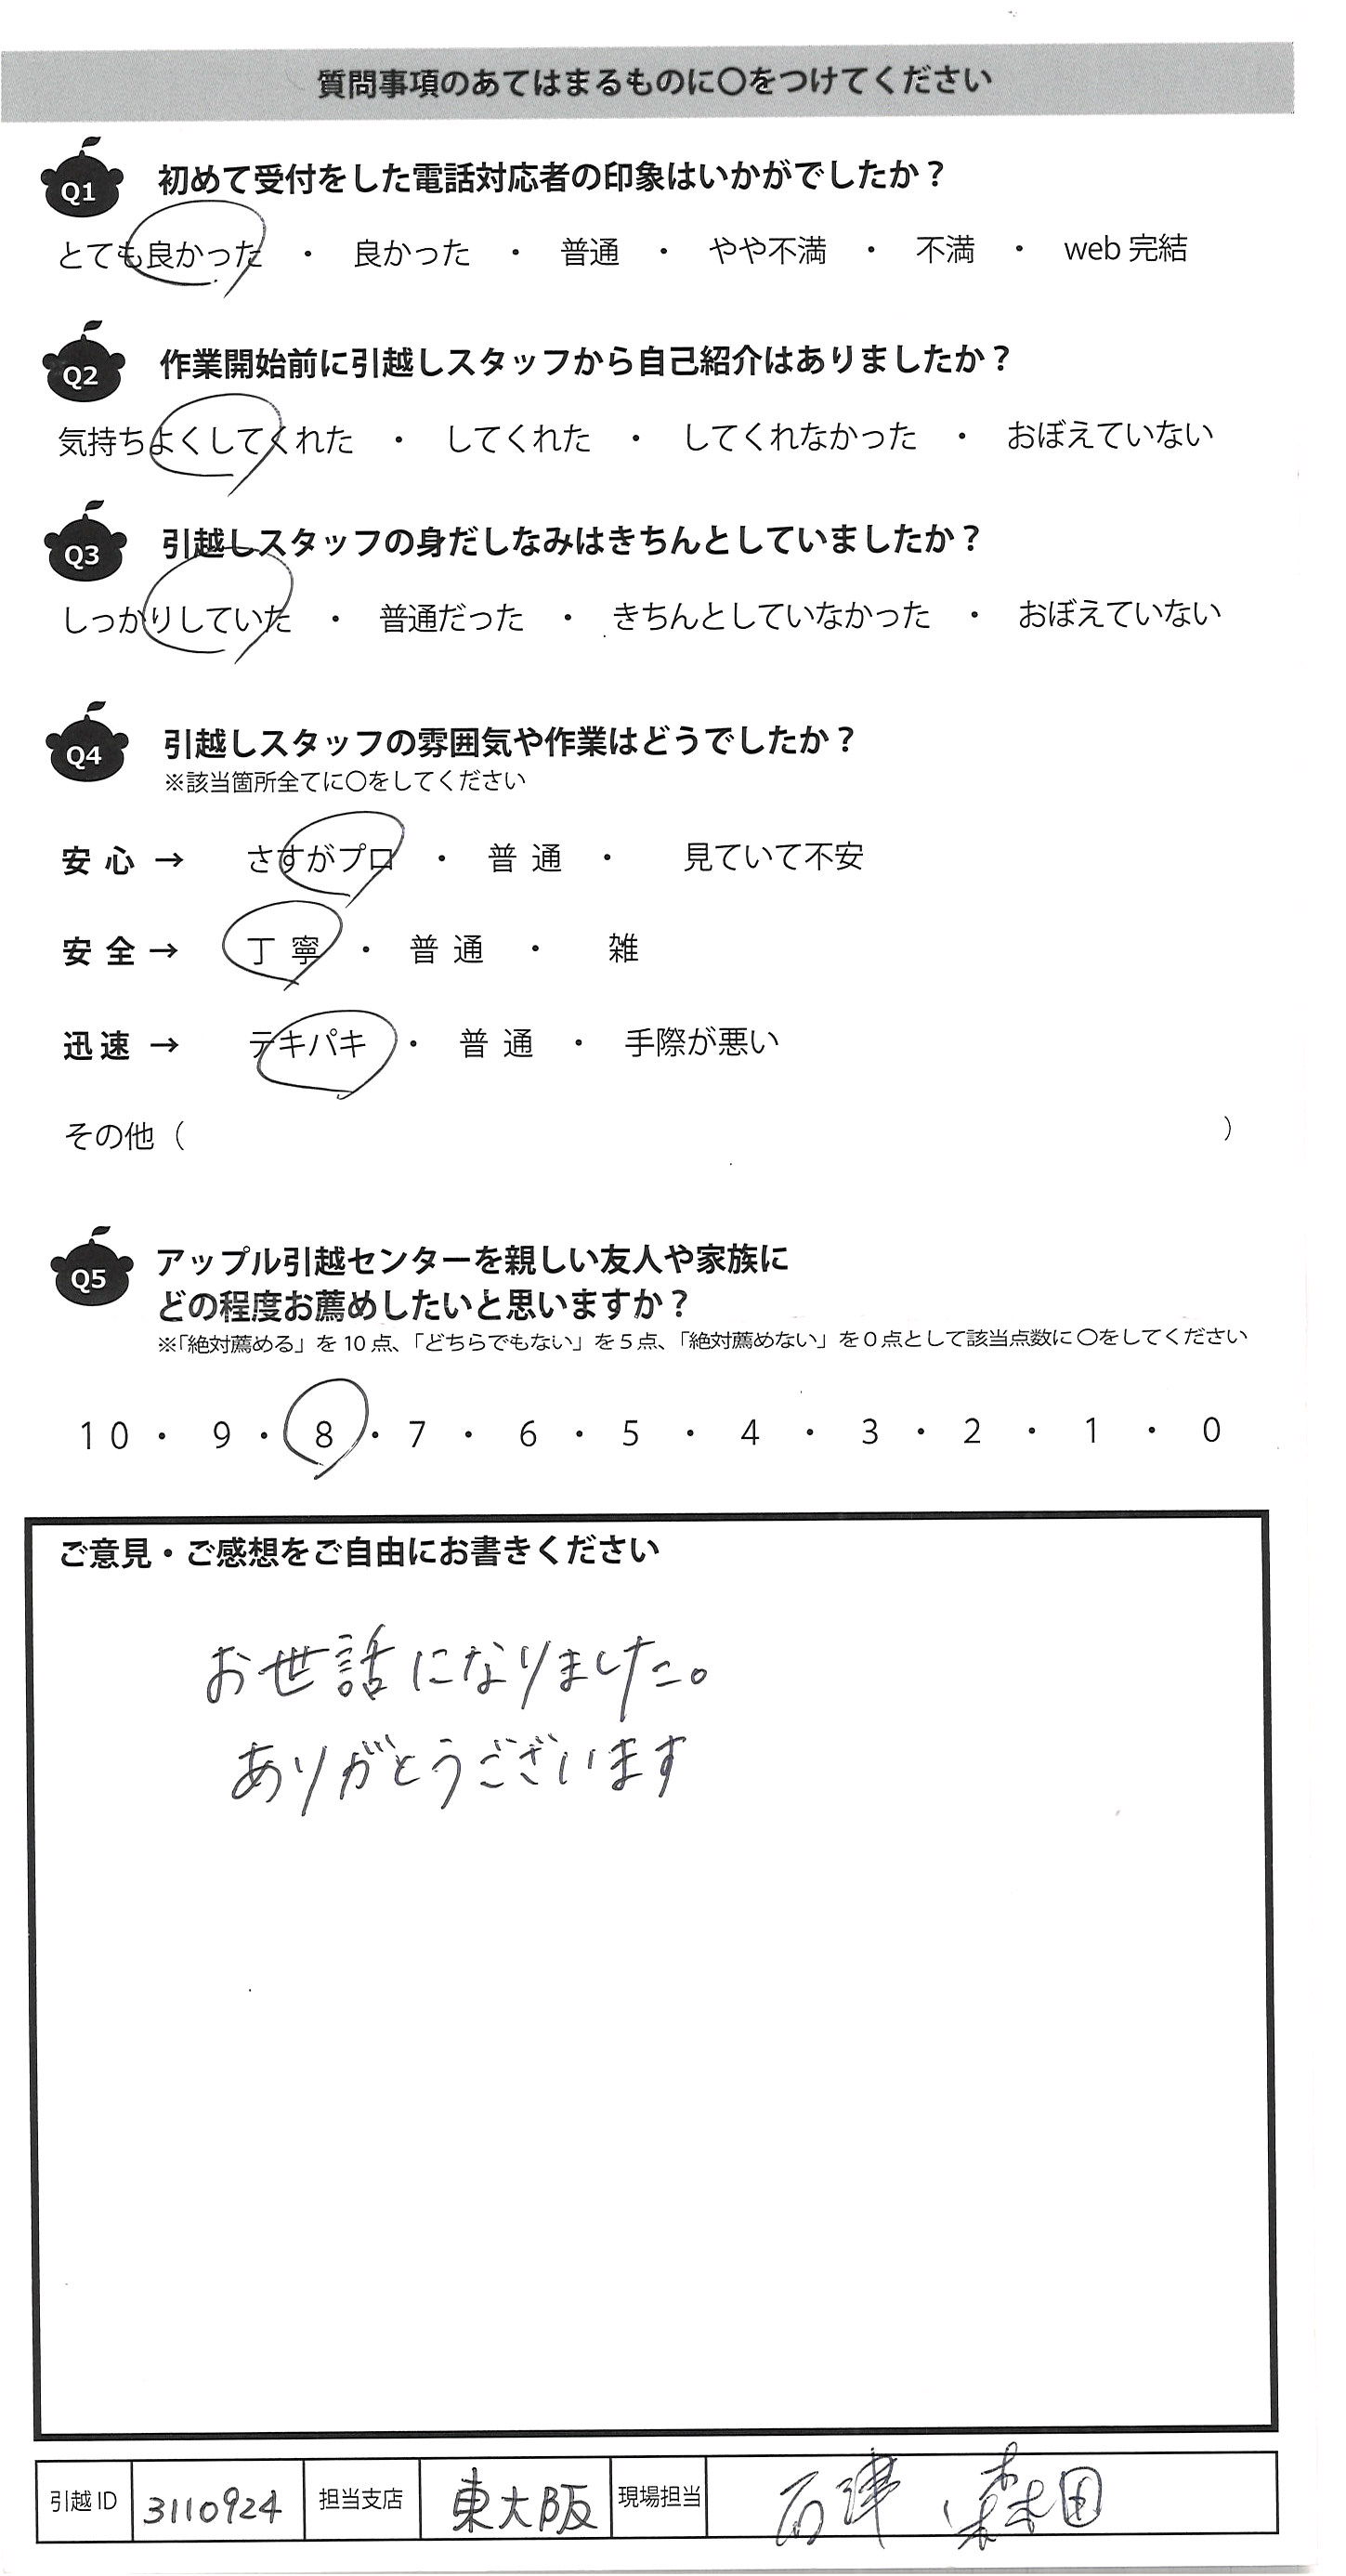 質問事項のあてはまるものに〇をつけてください
Q1 初めて受付をした電話対応者の印象はいかがでしたか？
とても良かった ・ 良かった ・ 普通 ・ やや不満 ・ 不満 ・ web 完結
Q2 作業開始前に引越しスタッフから自己紹介はありましたか？
気持ちよくしてくれた ・ してくれた ・ してくれなかった ・ おぼえていない
Q3 引越しスタッフの身だしなみはきちんとしていましたか？
しっかりしていた ・ 普通だった ・ きちんとしていなかった ・ おぼえていない
Q4 引越しスタッフの雰囲気や作業はどうでしたか？
※該当箇所全てに〇をしてください
安心 → さすがプロ ・ 普通 ・ 見ていて不安
安全 → 丁寧 ・ 普通 ・ 雑
迅速 → テキパキ ・ 普通 ・ 手際が悪い
その他（ ）
Q5 アップル引越センターを親しい友人や家族に
どの程度お薦めしたいと思いますか？
※「絶対薦める」を 10 点、「どちらでもない」を 5 点、「絶対薦めない」を 0 点として該当点数に〇をしてください
10 ・ 9 ・ 8 ・ 7 ・ 6 ・ 5 ・ 4 ・ 3 ・ 2 ・ 1 ・ 0
ご意見・ご感想をご自由にお書きください
お世話になりました。
ありがとうございます
引越 ID 3110924 担当支店 東大阪 現場担当 石津 森田